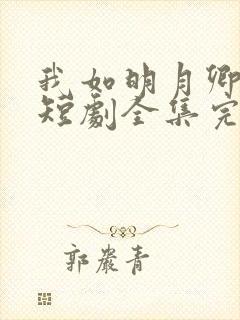 我如明月卿
短劇全集完
郭嚴青